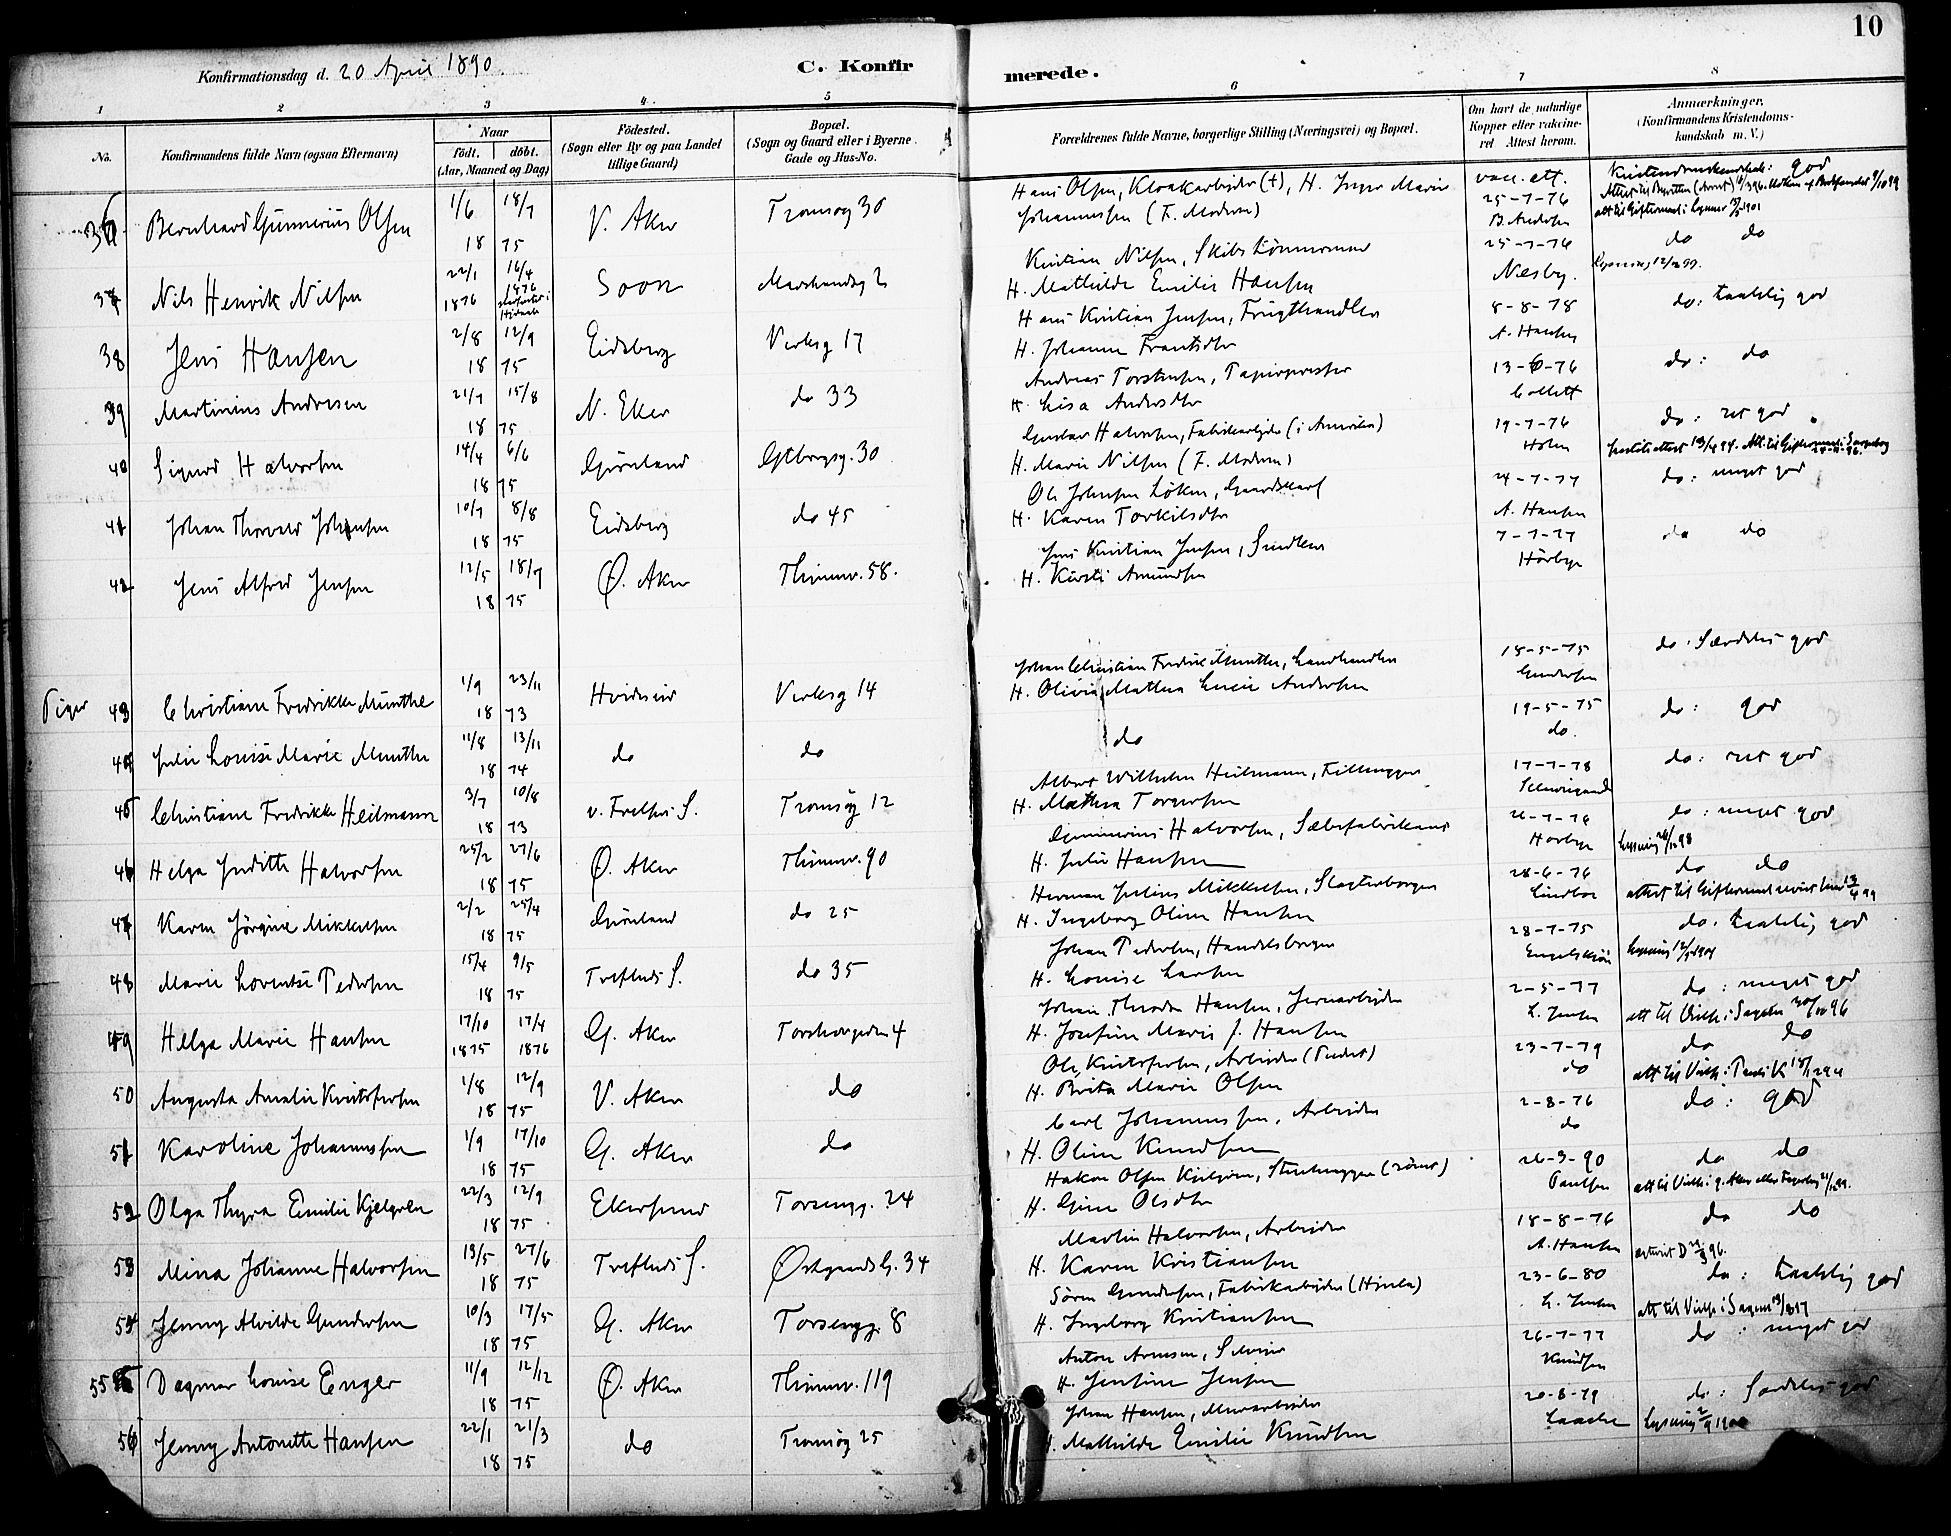 10
Konfirmationsdag d. 20 April 1890.
C. Konfirmerede.
1 2 3 4 5 6 7 8
No.
Konfirmandens fulde Navn (ogsaa Efternavn)
Naar
født. døbt.
(Aar, Maaned og Dag)
Fødested.
(Sogn eller By og paa Landet
tillige Gaard)
Bopæl.
(Sogn og Gaard eller i Byerne
Gade og Hus-No.
Forældrenes fulde Navne, borgerlige Stilling (Næringsvei) og Bopæl.
Om havt de naturlige
Kopper eller vakcine-
ret Attest herom.
Anmærkninger.
(Konfirmandens Kristendoms-
kundskab m. V.)
36 Bernhard Gunnerius Olsen 1/6 18/7 18 75 V. Aker Tromsøg 30 Hans Olsen, Kloakarbeider (+), H. Inger Marie
Johannessen (F. Moderen) vacc. att. 25-7-76 B. Andersen Kristendomskundskab: god
37 Nils Henrik Nilsen 22/1 1876 16/4 1876 Soon Markvandsg 2 Kristian Nilsen, Skibstømmermand
H. Mathilde Emilie Hansen 25-7-76 Næsby. do do
38 Jens Hansen 2/8 12/9 18 75 Eidsberg Verksg 17 Hans Kristian Jensen, Frugthandler
H. Johanne Frantsdtr 8-8-78 A. Hansen do: taalelig god
39 Martinius Andresen 21/7 15/8 18 75 N. Eker do 33 Andreas Torstensen, Papirpresser
H. Lisa Andersdtr 13-6-76 Collett do: do
40 Sigurd Halvorsen 14/4 6/6 18 75 Grønland Gøtborgsg. 30 Gustav Halvorsen, Fabrikarbeider (i Amerika)
H. Marie Nilsen (F. Moderen) 19-7-76 Holm do: ret god
41 Johan Thorvald Johansen 10/7 8/8 18 75 Eidsberg do 45 Ole Johnsen Løken, Gaardskarl
H. Karen Torkilsdtr 24-7-77 A. Hansen do: meget god
42 Jens Alfred Jensen 12/5 18/7 18 75 Ø. Aker Thimev. 58. Jens Kristian Jensen, Snedker
H. Kirsti Amundsen 7-7-77 Hørbye do do
Piger 43 Christiane Fredrikke Münthe 1/9 23/11 18 73 Hvideseid Verksg 14 Johan Christian Fredrik Münthe, Landhandler
H. Olivia Mathea Lucie Andersen 18-5-75 Gundersen do: Særdeles god
44 Julie Louise Marie Munthe 11/8 13/11 18 74 do do do 19-5-75 do. do: god
45 Christiane Fredrikke Heilmann 3/7 10/8 18 73 v. Frelsers S. Tromsøg 12 Albert Wilhelm Heilmann, Filhugger
H. Mathea Torgersen 17-7-78 do: ret god
46 Helga Juditte Halvorsen 25/2 27/6 18 75 Ø. Aker Thimev. 90 Gunnerius Halvorsen, Sæbefabrikant
H. Julie Hansen 26-7-76 Hørbye do: meget god
47 Karen Jørgine Mikkelsen 2/2 25/4 18 75 Grønland do 25 Herman Julius Mikkelsen, Slagterborger
H. Ingeborg Oline Hansen 28-6-76 Lindboe do do
48 Marie Lorentse Pedersen 15/4 9/5 18 75 Trefhuds S. do 35 Johan Pedersen, Handelsborger
H. Louise Larsen 28-7-75 Engelskjøn do: taalelig god
49 Helga Marie Hansen 17/10 1875 17/4 1876 G. Aker Torshovgaden 4 Johan Theodor Hansen, Jernarbeider
H. Josefine Marie J. Hansen 2-5-77 L. Jensen do: meget god
50 Augusta Amalie Kristofersen 1/8 12/9 18 75 V. Aker do Ole Kristofersen, Arbeider
H. Berta Marie Olsen 23-7-79 do do do
51 Karoline Johannessen 1/9 17/10 18 75 G. Aker do Carl Johannessen, Arbeider
H. Oline Knudsen 2-8-76 do do: god
52 Olga Thyra Emilie Kjelgren 22/3 12/9 18 75 Ekersund Torsengg. 24 Hakon Olsen Kjelgren, Stenhugger
H. Gine Olsdtr 26-3-90 Paulsen do do
53 Mina Johanne Halvorsen 13/5 27/6 18 75 Trefhuds S. Østgaards G. 34 Martin Halvorsen, Arbeider
H. Karen Kristiansen 18-8-76 A. Hansen do do
54 Jenny Alvilde Gundersen 10/3 17/5 18 75 G. Aker Torsengg. 8 Søren Gundersen, Fabrikarbeider (Hjula)
H. Ingeborg Kristiansen 23-6-80 L. Jensen do: taalelig god
55 Dagmar Louise Enger 11/9 12/12 18 75 Ø. Aker Thimev. 119 Anton Arnesen
H. Jensine Jensen 26-7-77 Knudsen do: meget god
56 Jenny Antonette Hansen 22/1 21/3 18 75 do Tromsøg 25 Johan Hansen, Murarbeider
H. Mathilde Emilie Knudsen 20-8-79 Laache do: Særdeles god